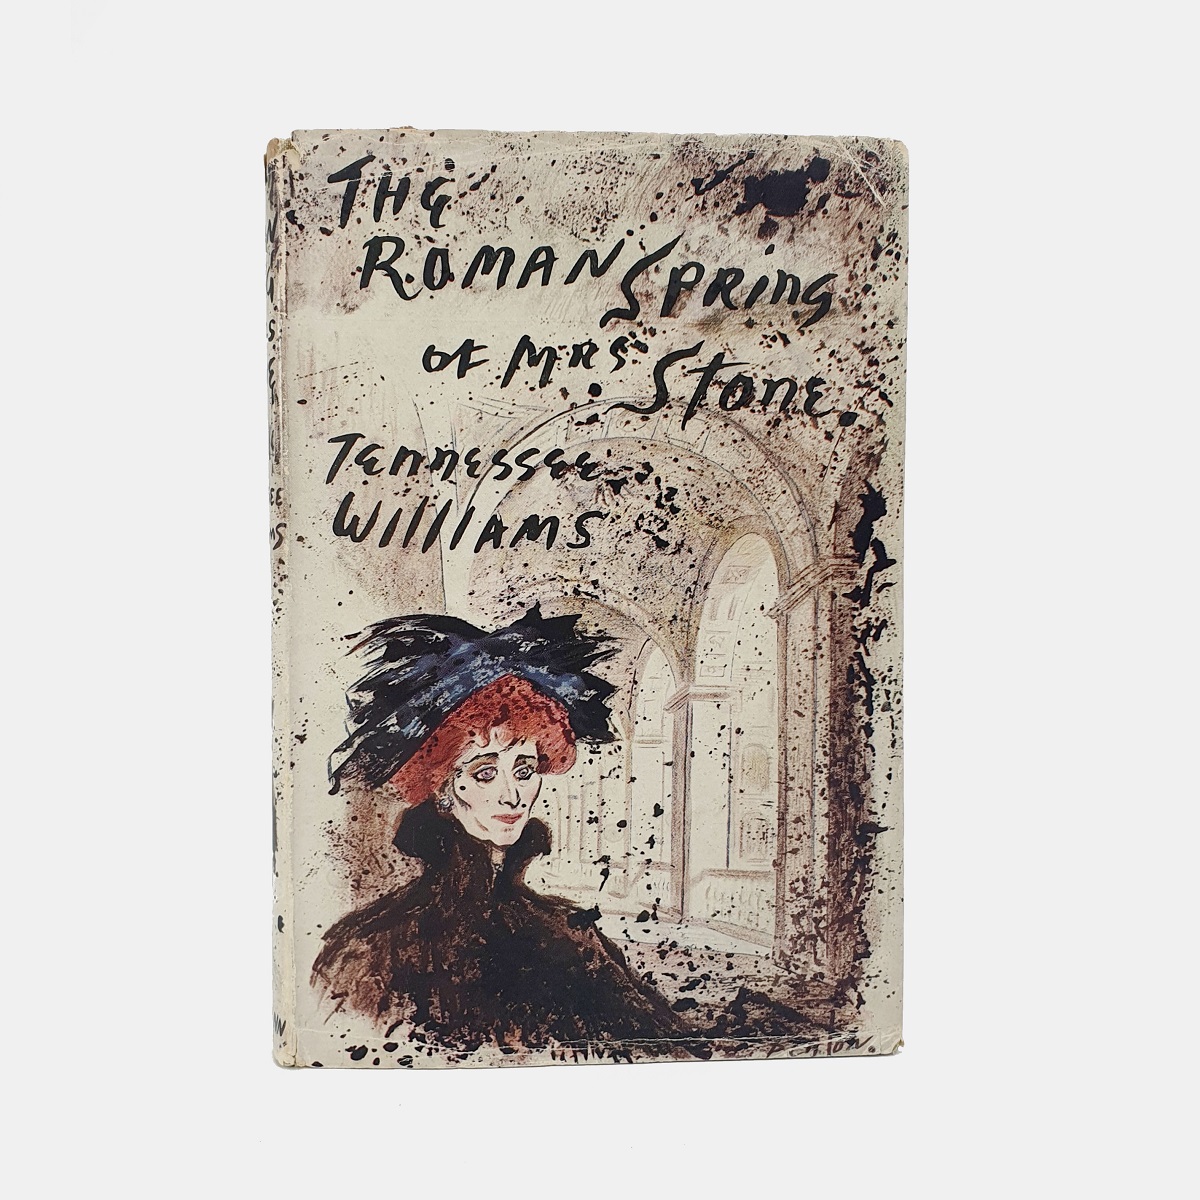 THE
ROMAN SPRING
OF MRS STONE.
TENNESSEE
WILLIAMS